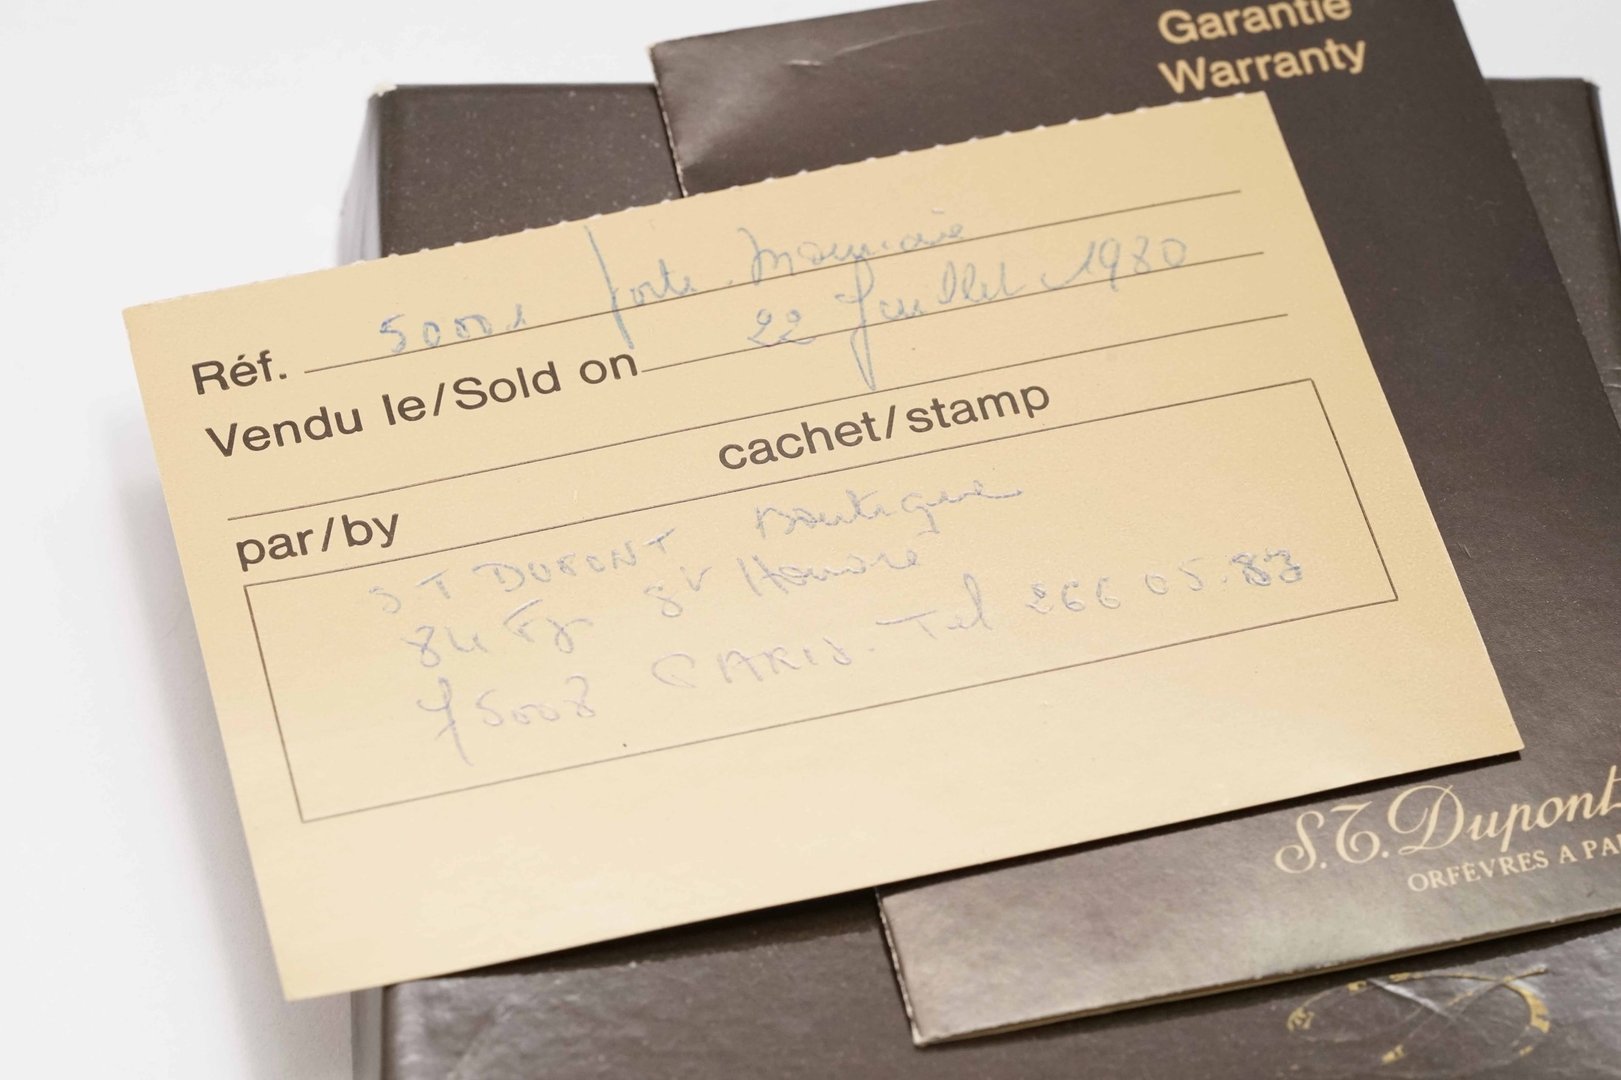 Garantie
Warranty
Réf. 50001 Porte-Monnaie
Vendu le/Sold on 22 Juillet 1980
cachet/stamp
par/by
ST DUPONT Boutique
84 Fg St Honoré
75008 PARIS. Tel 266 05.83
S.T. Dupont
ORFÈVRES A PA